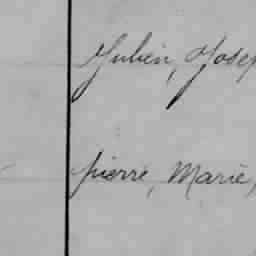 Julien, Josep
pierre, Marie,